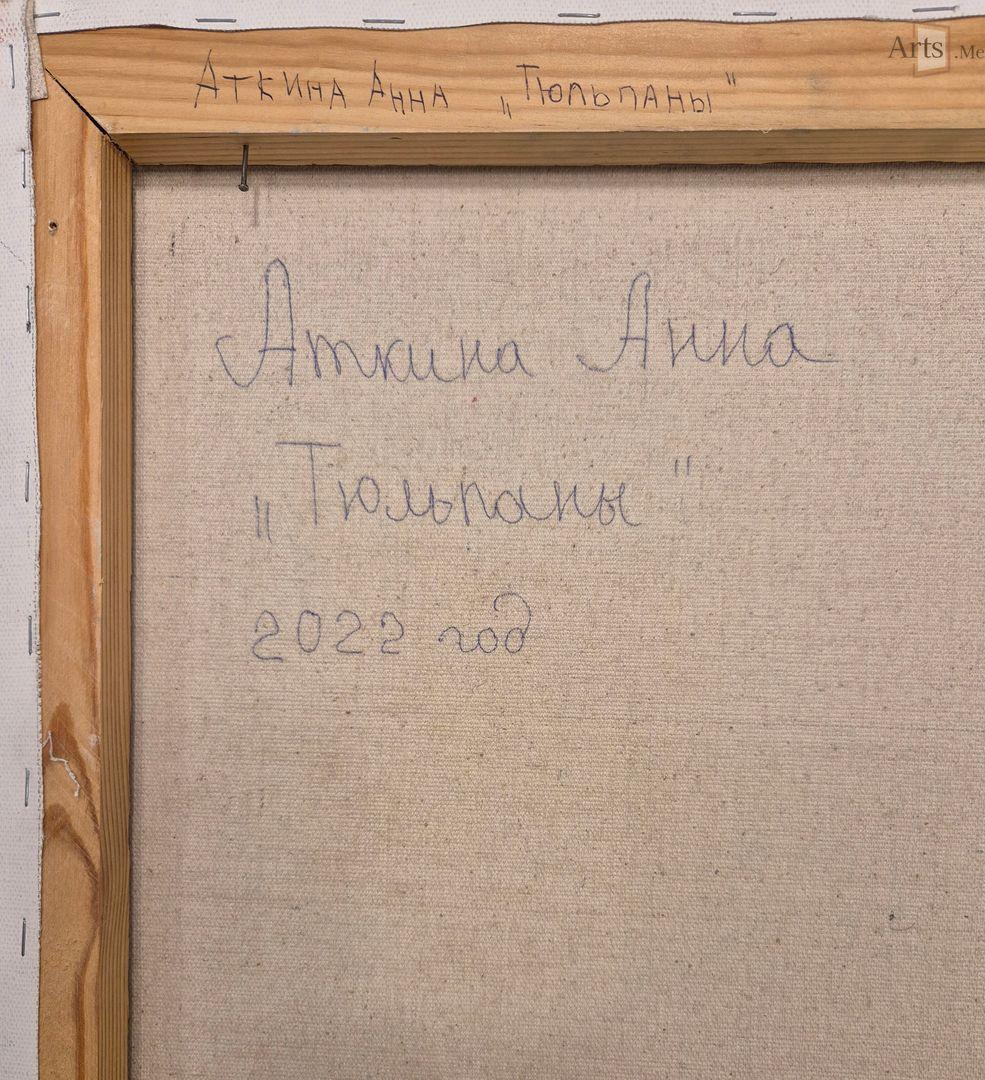 Arts.Me
Аткина Анна „Тюльпаны"
Аткина Анна
„Тюльпаны"
2022 год